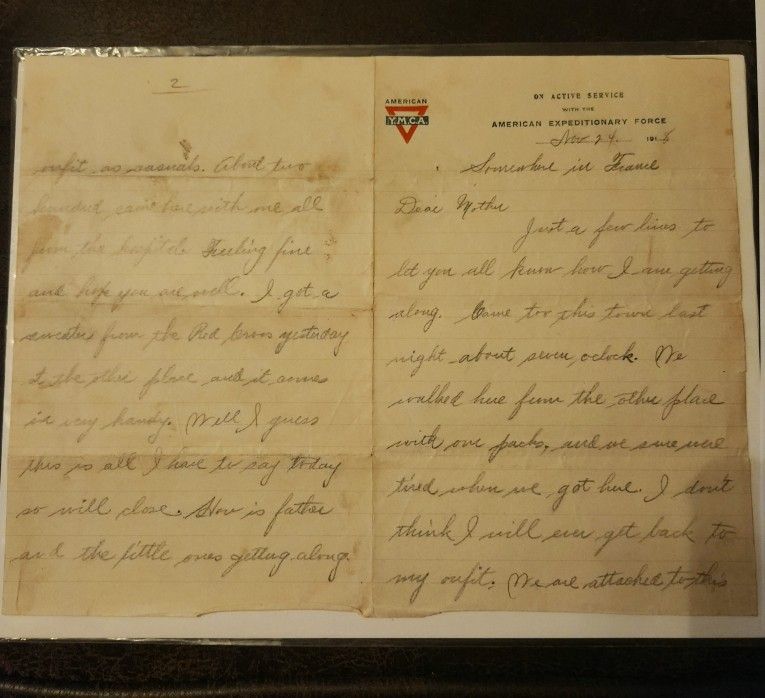 AMERICAN
Y.M.C.A.
ON ACTIVE SERVICE
WITH THE
AMERICAN EXPEDITIONARY FORCE
Nov 24. 1918
Somewhere in France
Dear Mother
Just a few lines to
let you all know how I am getting
along. Came to this town last
night about seven oclock. We
walked here from the other place
with our packs, and we sure were
tired when we got here. I don't
think I will ever get back to
my outfit. We are attached to this
2
outfit as casuals. About two
hundred came here with me all
from the hospital. Feeling fine
and hope you are well. I got a
sweater from the Red Cross yesterday
at the other place and it comes
in very handy. Well I guess
this is all I have to say today
so will close. How is father
and the little ones getting along.